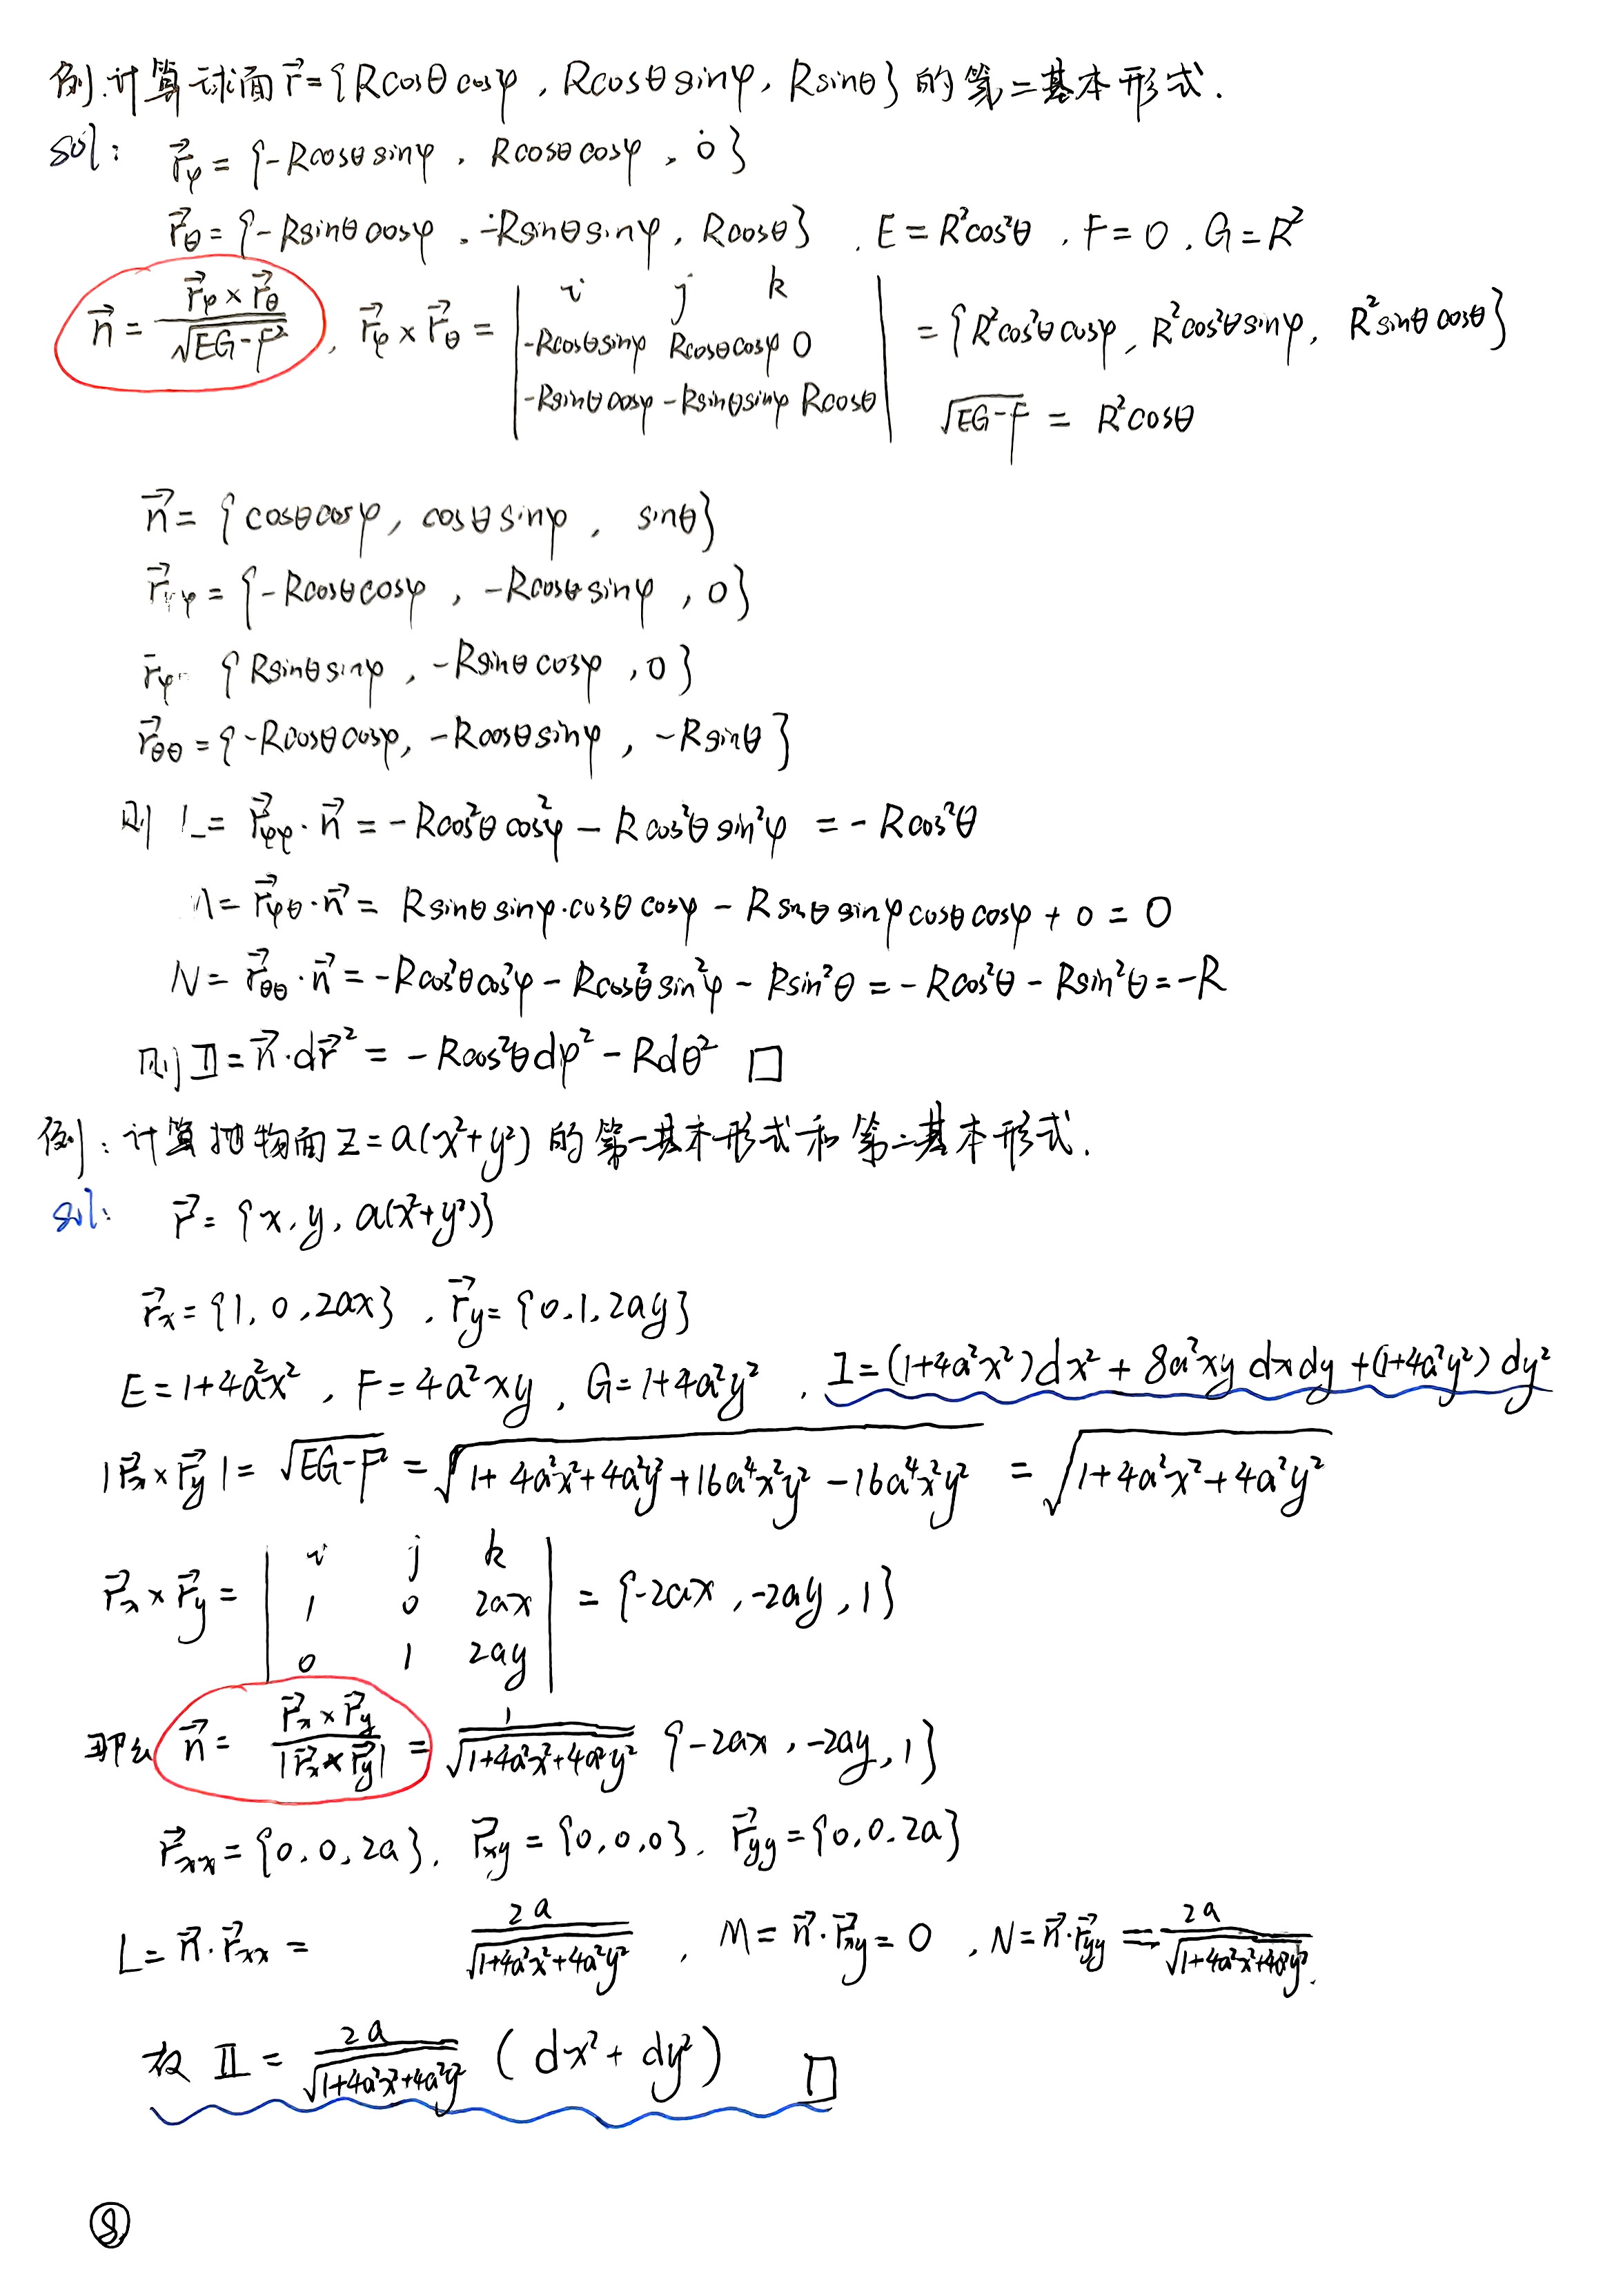 例:计算球面 r⃗={Rcosθcosφ, Rcosθsinφ, Rsinθ}的第二基本形式.
sol: r⃗φ={-Rcosθsinφ, Rcosθcosφ, 0}
r⃗θ={-Rsinθcosφ, -Rsinθsinφ, Rcosθ}, E=R²cos²θ, F=0, G=R²
n⃗= r⃗φ×r⃗θ / √EG-F², r⃗φ×r⃗θ = | i j k
-Rcosθsinφ Rcosθcosφ 0
-Rsinθcosφ -Rsinθsinφ Rcosθ | ={R²cos²θcosφ, R²cos²θsinφ, R²sinθcosθ}
√EG-F = R²cosθ
n⃗= {cosθcosφ, cosθsinφ, sinθ}
r⃗φφ={-Rcosθcosφ, -Rcosθsinφ, 0}
rφ {Rsinθsinφ, -Rsinθcosφ, 0}
r⃗θθ={-Rcosθcosφ, -Rcosθsinφ, -Rsinθ}
则 L= r⃗φφ·n⃗ = -Rcos²θcos²φ - Rcos²θsin²φ = -Rcos²θ
= r⃗φθ·n⃗ = Rsinθsinφ·cosθcosφ - Rsinθsinφcosθcosφ + 0 = 0
N= r⃗θθ·n⃗ = -Rcos²θcos²φ - Rcos²θsin²φ - Rsin²θ = -Rcos²θ - Rsin²θ = -R
则 Ⅱ= n⃗·dr⃗² = -Rcos²θdφ² - Rdθ² □
例:计算抛物面 z=a(x²+y²)的第一基本形式和第二基本形式.
sol: r⃗= {x, y, a(x²+y²)}
r⃗x={1, 0, 2ax}, r⃗y={0, 1, 2ay}
E=1+4a²x², F=4a²xy, G=1+4a²y², I=(1+4a²x²)dx² + 8a²xy dxdy + (1+4a²y²)dy²
|r⃗x×r⃗y|= √EG-F² = √1+4a²x²+4a²y²+16a⁴x²y²-16a⁴x²y² = √1+4a²x²+4a²y²
r⃗x×r⃗y= | i j k
1 0 2ax
0 1 2ay | = {-2ax, -2ay, 1}
那么 n⃗= r⃗x×r⃗y / |r⃗x×r⃗y| = 1/√1+4a²x²+4a²y² {-2ax, -2ay, 1}
r⃗xx={0, 0, 2a}, r⃗xy={0, 0, 0}, r⃗yy={0, 0, 2a}
L= n⃗·r⃗xx = 2a/√1+4a²x²+4a²y², M= n⃗·r⃗xy=0, N= n⃗·r⃗yy = 2a/√1+4a²x²+4a²y².
故 Ⅱ= 2a/√1+4a²x²+4a²y² (dx²+dy²) □
⑧